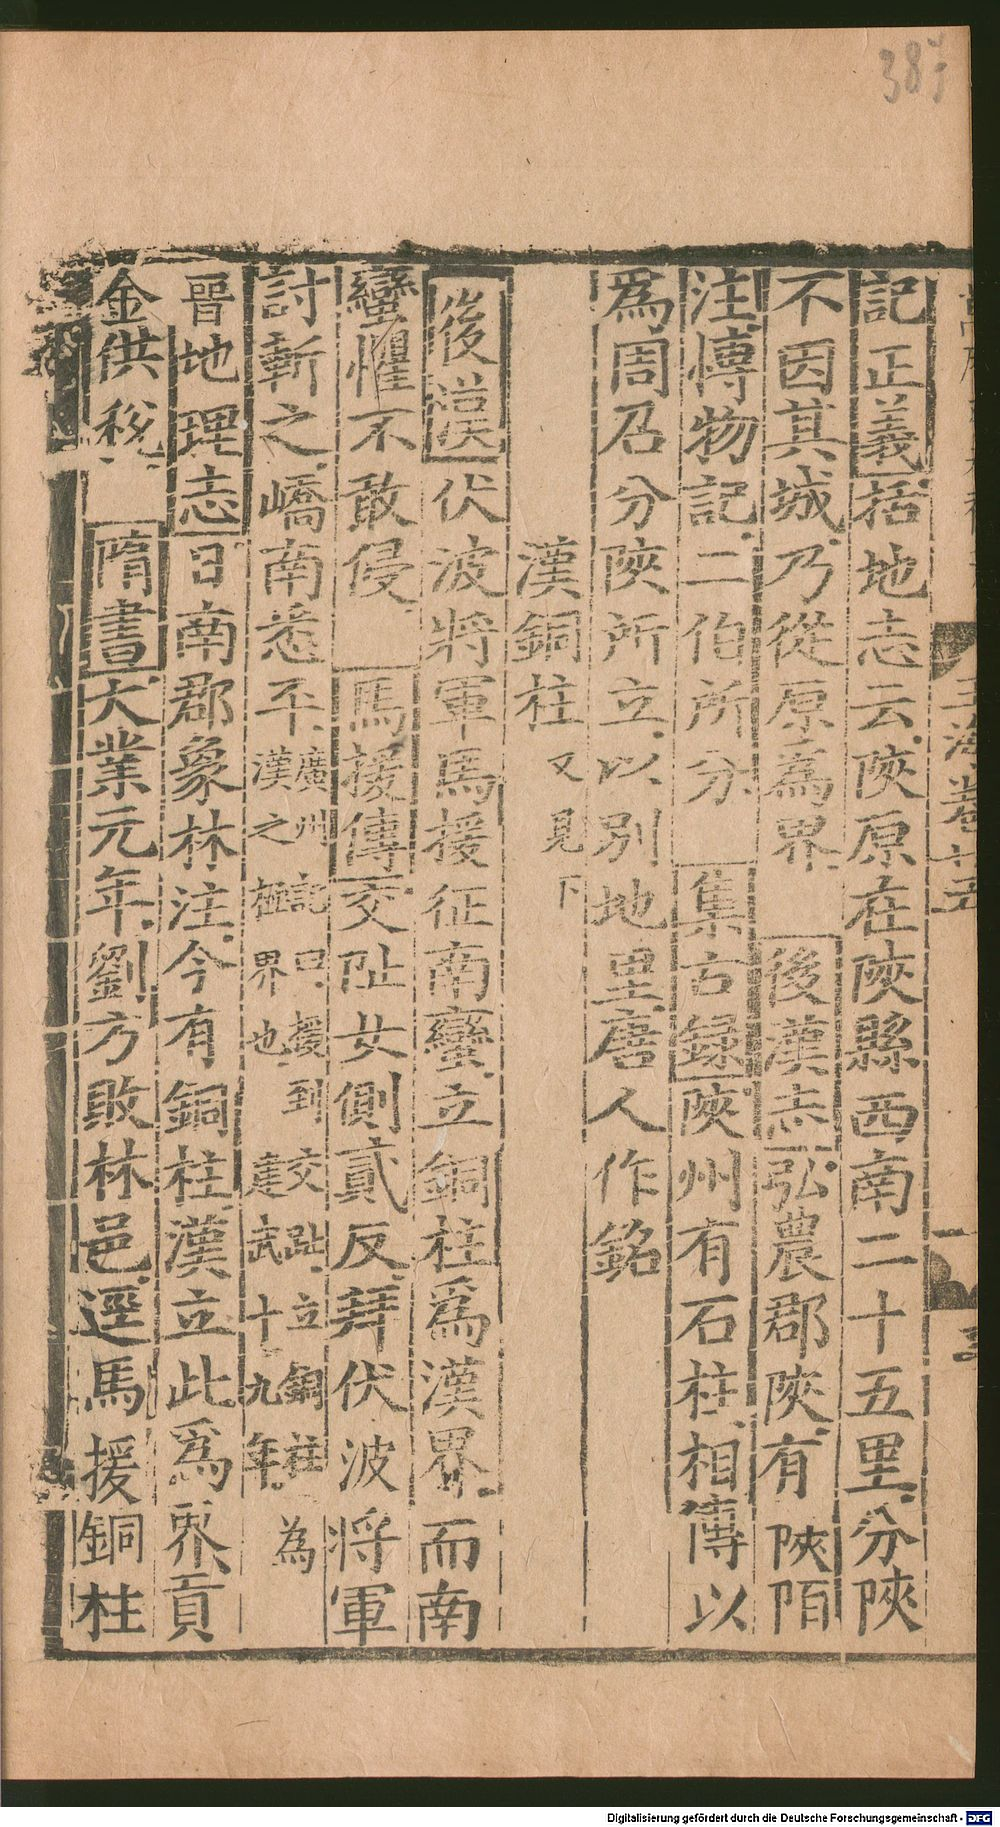 38
記正義括地志云陝原在陝縣西南二十五里分陝
不因其城乃從原爲界 後漢志弘農郡陝有陝陌
注博物記二伯所分 集古録陝州有石柱相傳以
爲周召分陝所立以別地里唐人作銘
漢銅柱 又見下
後漢伏波將軍馬援征南蠻立銅柱爲漢界而南
蠻懼不敢侵 馬援傳交阯女側貳反拜伏波将軍
討斬之嶠南悉平 廣州記曰援到交趾立銅柱為漢之極界也 建武十九年
晉地理志日南郡象林注今有銅柱漢立此爲界貢
金供稅 隋書大業元年劉方敗林邑逕馬援銅柱
Digitalisierung gefördert durch die Deutsche Forschungsgemeinschaft - DFG